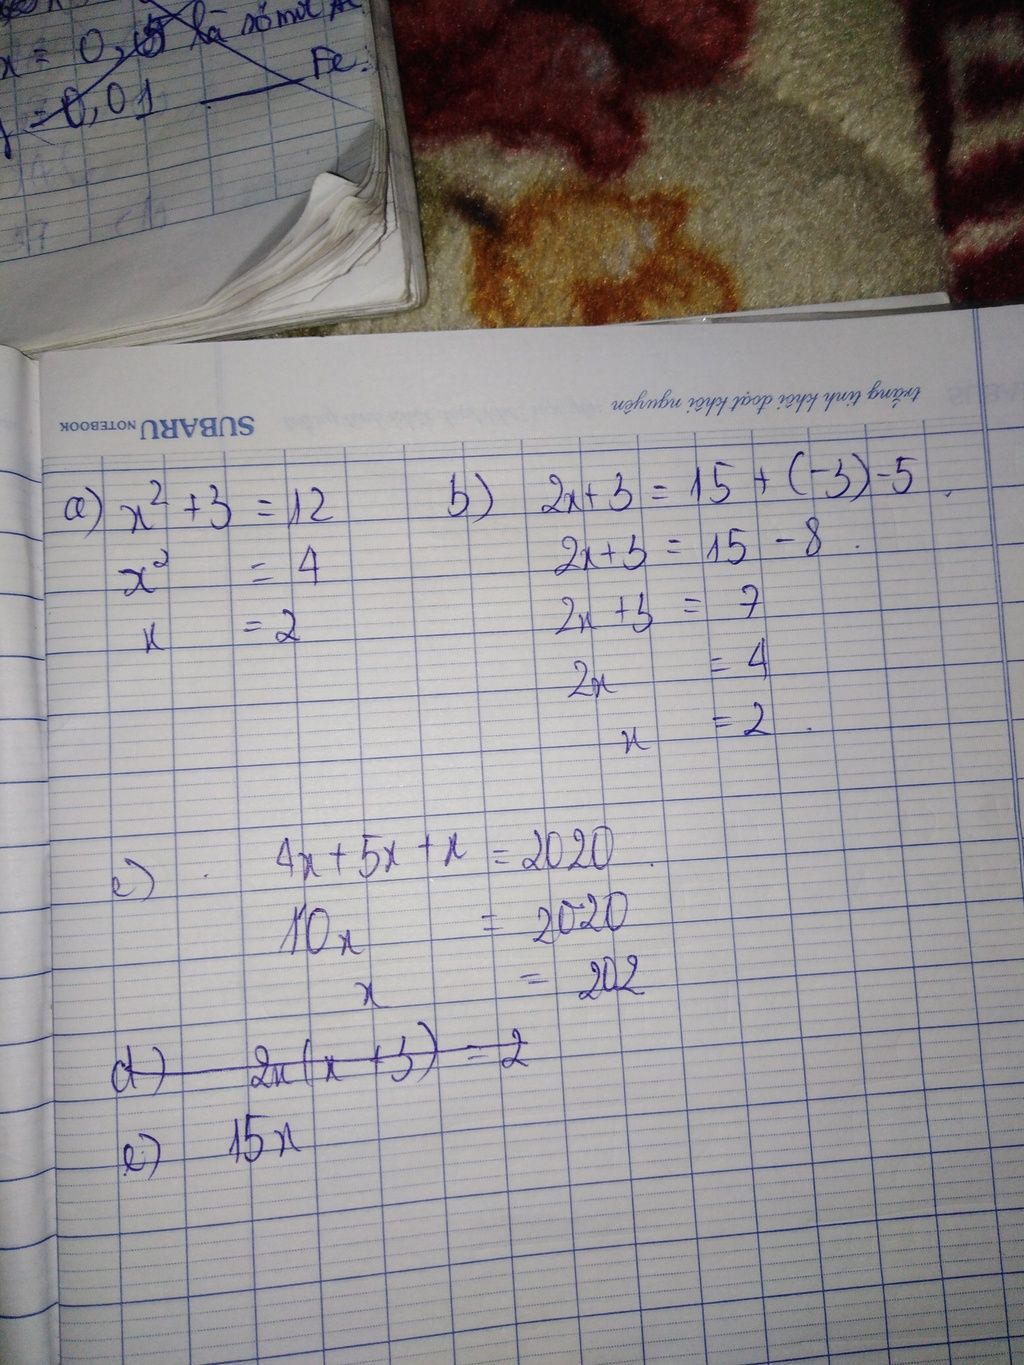 x = 0,15 là số mol
Fe:
y = 0,01
SUBARU NOTEBOOK
trắng tinh khôi đoạt khôi nguyên
a) x² + 3 = 12
x² = 4
x = 2
b) 2x + 3 = 15 + (-3) - 5
2x + 3 = 15 - 8
2x + 3 = 7
2x = 4
x = 2
c) 4x + 5x + x = 2020
10x = 2020
x = 202
d) 2x(x + 3) = 2
e) 15x